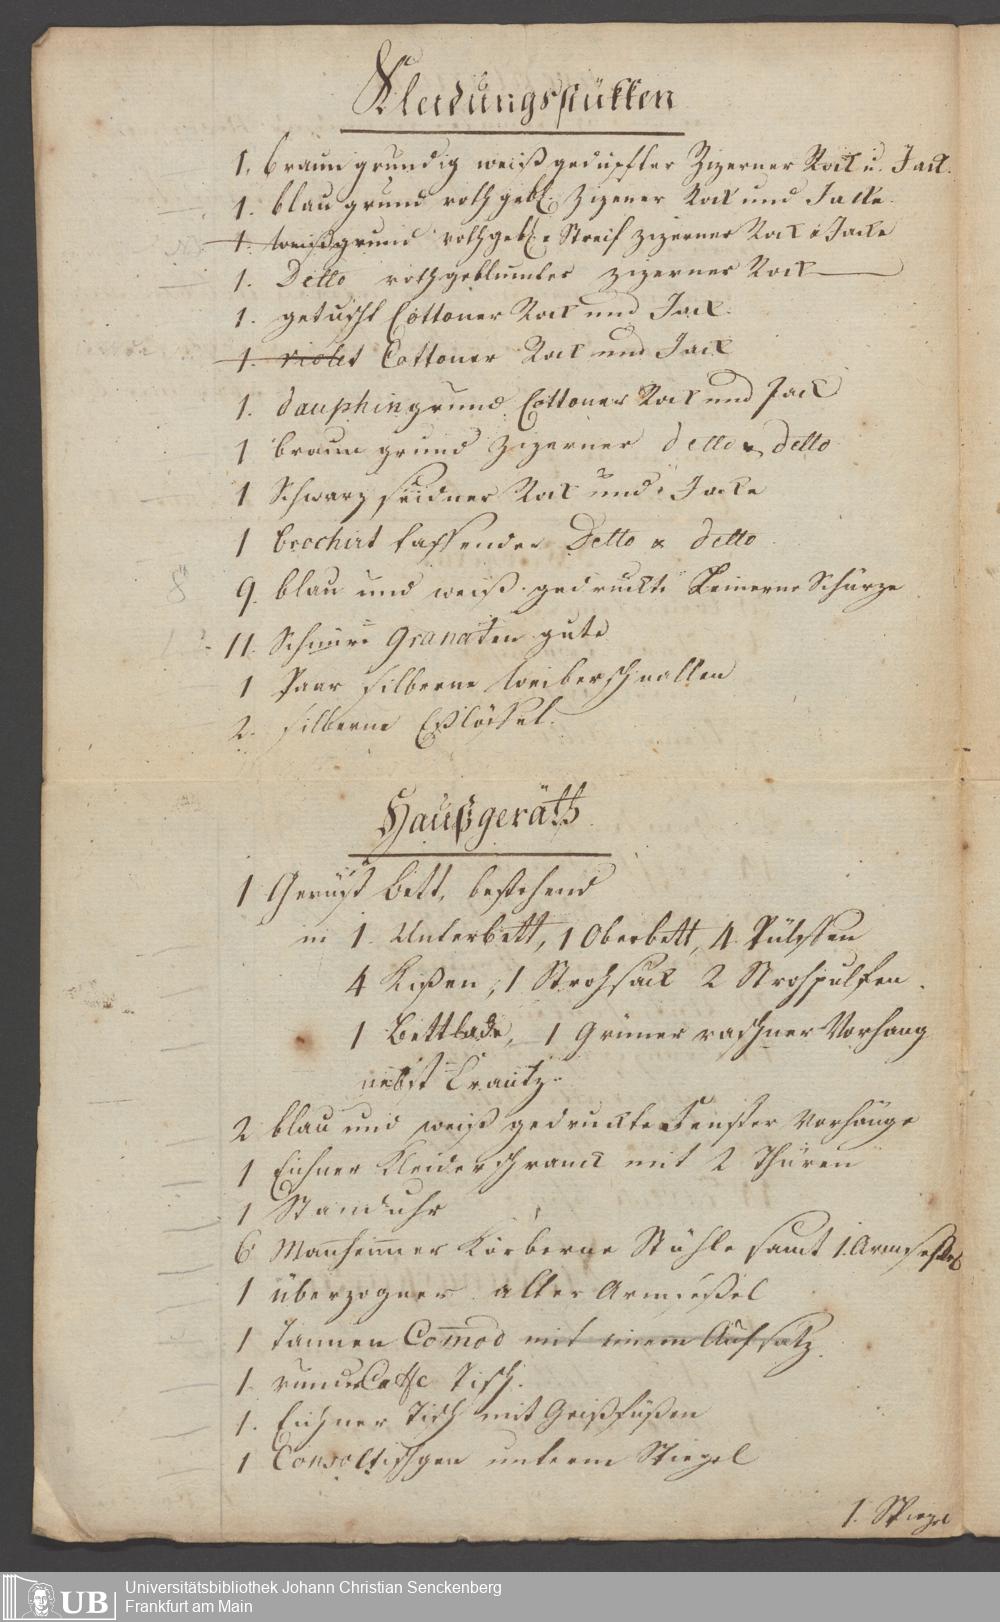 Kleidungsstükken
1. braun grundig weiß gedupfter Zizerner Rock u. Jack.
1. blau grund roth gebl. Zizener Rock und Jacke.
1. weißgrund rothgebl. Streif zizerner Rock & Jacke
1. Detto rothgeblumter zizerner Rock
1. getuscht Cottoner Rock und Jack.
1. violet Cottoner Rock und Jack
1. dauphingrund Cottoner Rock und Jack
1 braun grund Zizerner detto & detto
1 Schwarz seidner Rock und Jacke
1 brochirt taffender Detto & detto
9. blau und weiß gedruckte Leinerne Schürze
8
11. Schnüre Granaten gute
1 Paar silberne Weiberschnallen
2. silberne Eßlöffel.
Haußgeräth
1 Gerüst Bett, bestehend
in 1. Unterbett, 1 Oberbett, 4 Pülffen
4 Kißen, 1 Strohsack 2 Strohpulfen.
1 Bettlade, 1 Grüner raschner Vorhang
nebst Crantz.
2 blau und weiß gedruckte Fenster Vorhänge
1 Eichner Kleiderschranck mit 2 Thüren
1 Standuhr
6 Manheimer Körberne Stühle samt 1. Armseßel
1 überzogner alter Armseßel
1 tannen Comod mit einem Aufsatz.
1. runder Caffe Tisch.
1. Eichner Tisch mit Geißfüßen
1 Consoltischgen unterm Spiegel
1. Spiegel
Universitätsbibliothek Johann Christian Senckenberg
Frankfurt am Main
UB